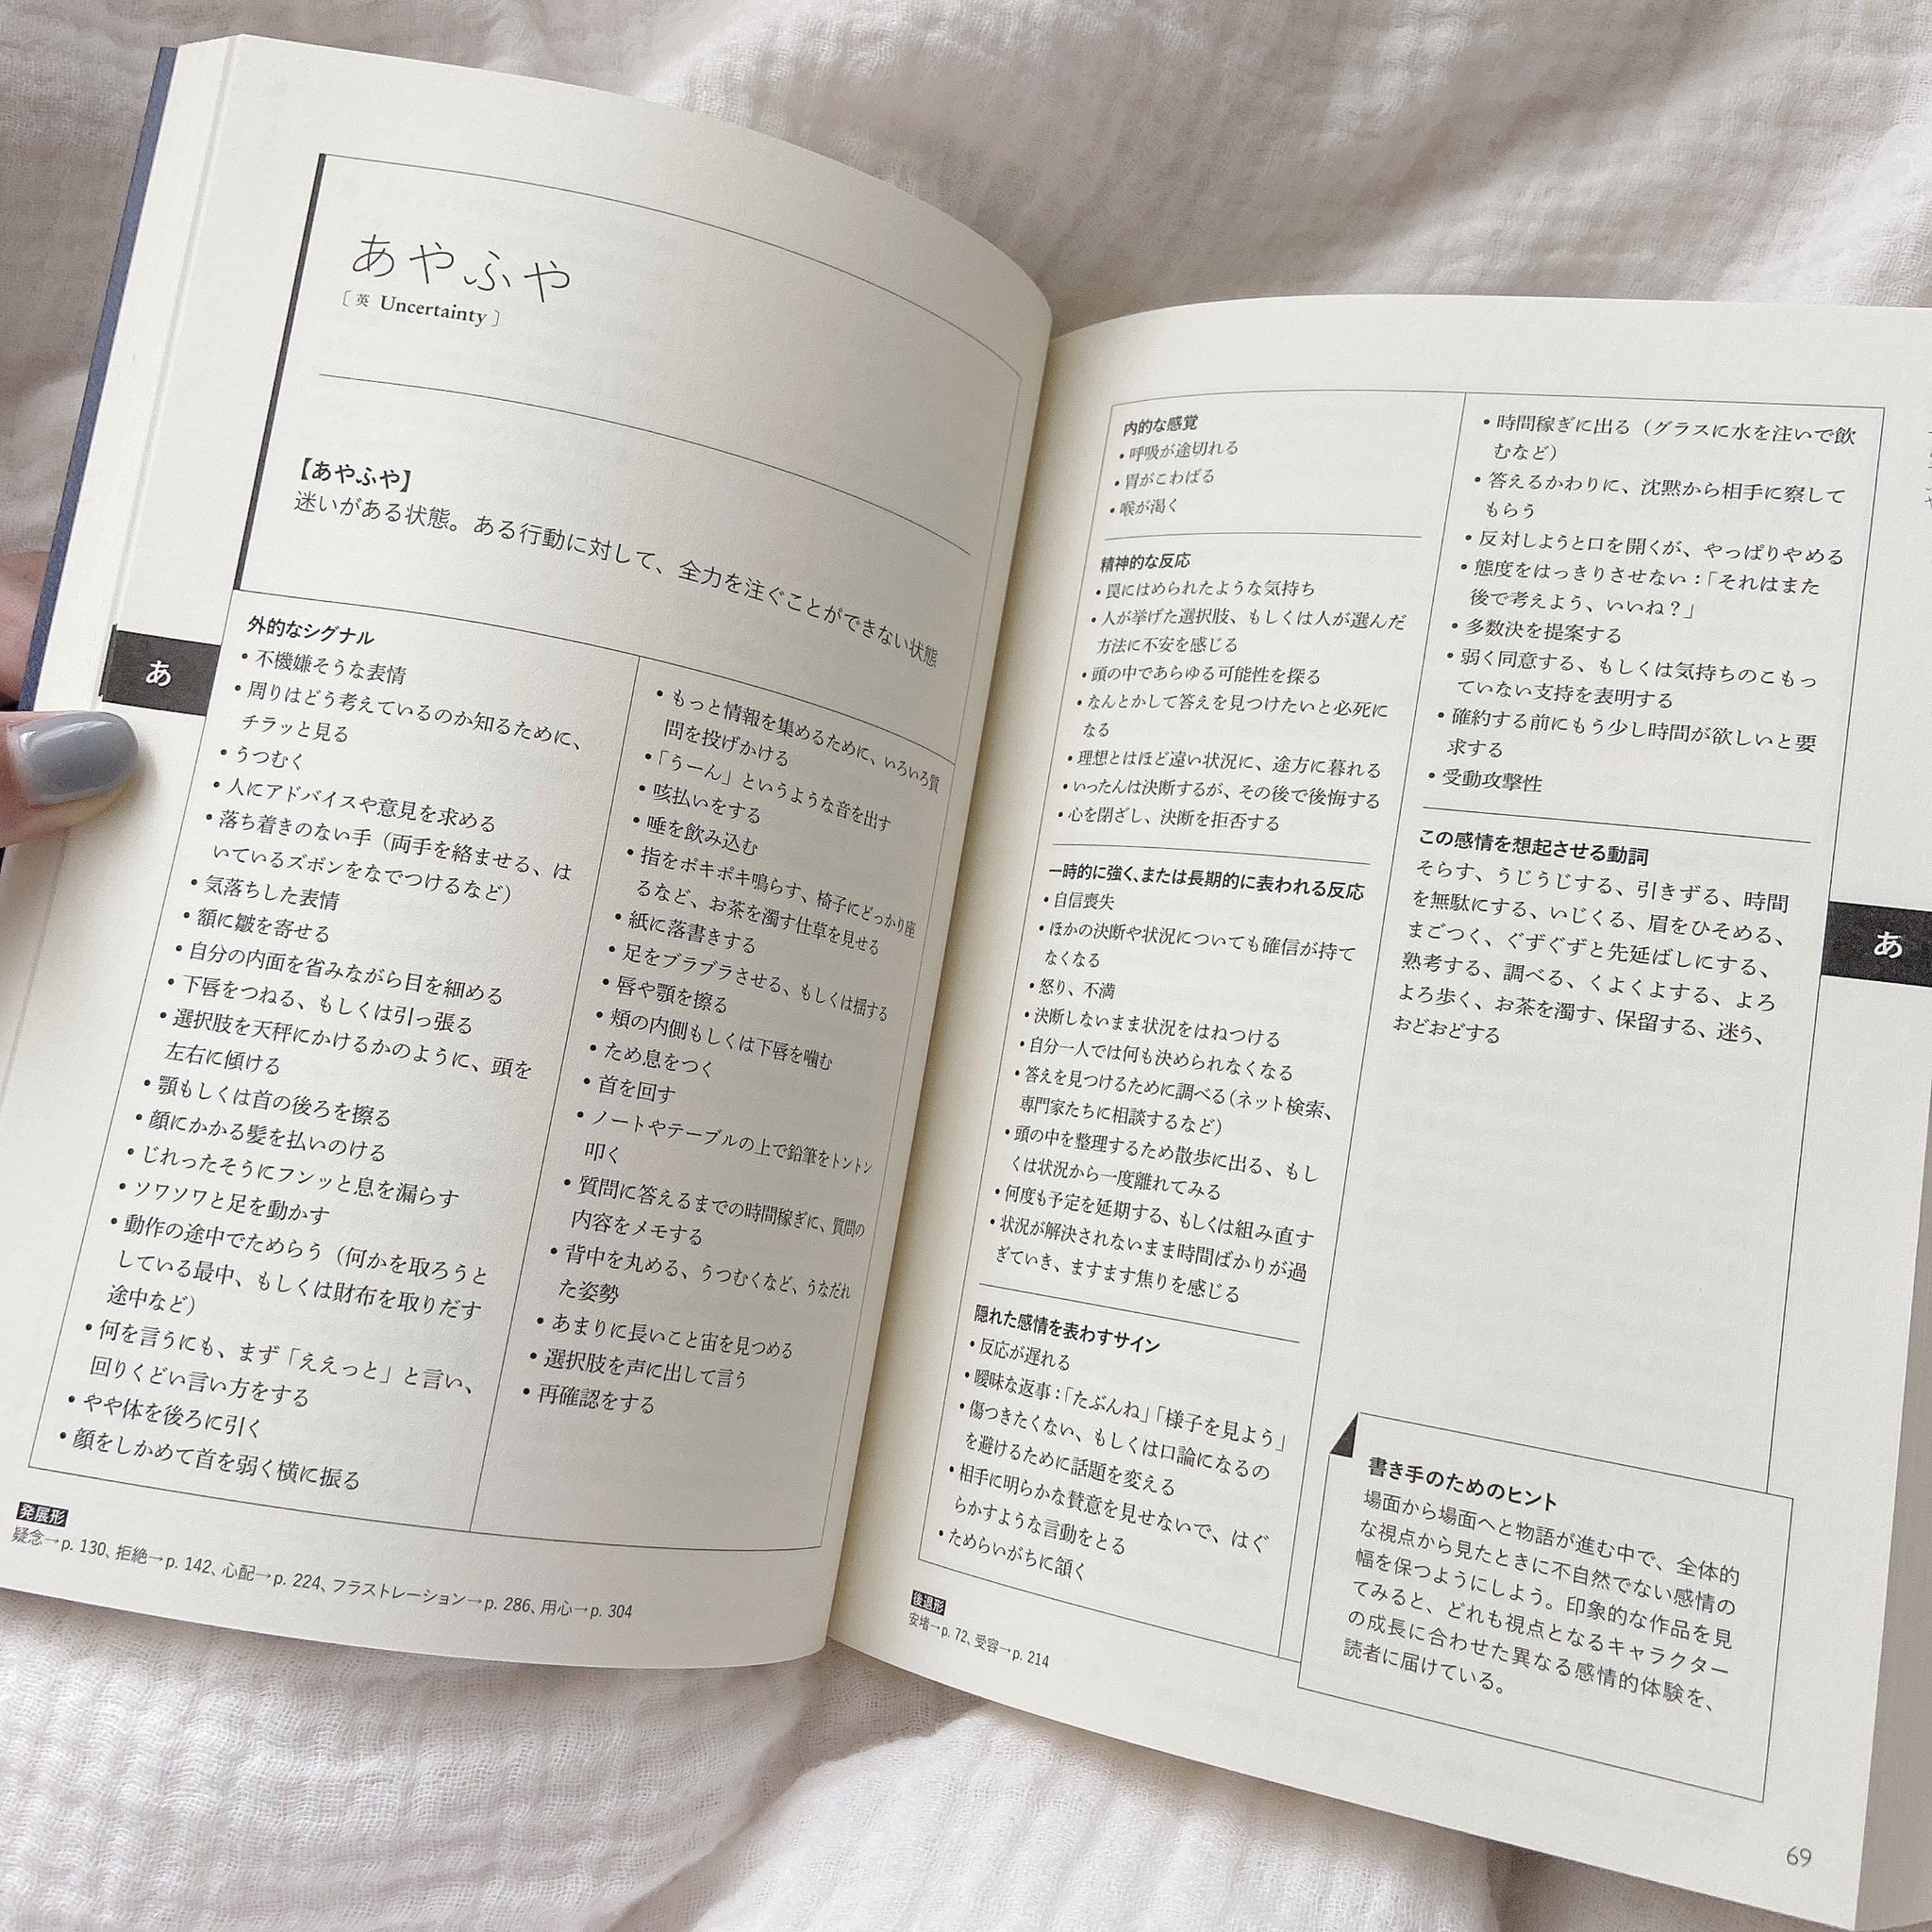 あやふや
［英 Uncertainty］
【あやふや】
迷いがある状態。ある行動に対して、全力を注ぐことができない状態
あ
外的なシグナル
• 不機嫌そうな表情
• 周りはどう考えているのか知るために、
チラッと見る
• うつむく
• 人にアドバイスや意見を求める
• 落ち着きのない手（両手を絡ませる、は
いているズボンをなでつけるなど）
• 気落ちした表情
• 額に皺を寄せる
• 自分の内面を省みながら目を細める
• 下唇をつねる、もしくは引っ張る
• 選択肢を天秤にかけるかのように、頭を
左右に傾ける
• 顎もしくは首の後ろを擦る
• 顔にかかる髪を払いのける
• じれったそうにフンッと息を漏らす
• ソワソワと足を動かす
• 動作の途中でためらう（何かを取ろうと
している最中、もしくは財布を取りだす
途中など）
• 何を言うにも、まず「ええっと」と言い、
回りくどい言い方をする
• やや体を後ろに引く
• 顔をしかめて首を弱く横に振る
• もっと情報を集めるために、いろいろ質
問を投げかける
• 「うーん」というような音を出す
• 咳払いをする
• 唾を飲み込む
• 指をポキポキ鳴らす、椅子にどっかり座
るなど、お茶を濁す仕草を見せる
• 紙に落書きする
• 足をブラブラさせる、もしくは揺する
• 唇や顎を擦る
• 頬の内側もしくは下唇を噛む
• ため息をつく
• 首を回す
• ノートやテーブルの上で鉛筆をトントン
叩く
• 質問に答えるまでの時間稼ぎに、質問の
内容をメモする
• 背中を丸める、うつむくなど、うなだれ
た姿勢
• あまりに長いこと宙を見つめる
• 選択肢を声に出して言う
• 再確認をする
発展形
疑念→p. 130、拒絶→p. 142、心配→p. 224、フラストレーション→p. 286、用心→p. 304
内的な感覚
• 呼吸が途切れる
• 胃がこわばる
• 喉が渇く
精神的な反応
• 罠にはめられたような気持ち
• 人が挙げた選択肢、もしくは人が選んだ
方法に不安を感じる
• 頭の中であらゆる可能性を探る
• なんとかして答えを見つけたいと必死に
なる
• 理想とはほど遠い状況に、途方に暮れる
• いったんは決断するが、その後で後悔する
• 心を閉ざし、決断を拒否する
一時的に強く、または長期的に表われる反応
• 自信喪失
• ほかの決断や状況についても確信が持て
なくなる
• 怒り、不満
• 決断しないまま状況をはねつける
• 自分一人では何も決められなくなる
• 答えを見つけるために調べる（ネット検索、
専門家たちに相談するなど）
• 頭の中を整理するため散歩に出る、もし
くは状況から一度離れてみる
• 何度も予定を延期する、もしくは組み直す
• 状況が解決されないまま時間ばかりが過
ぎていき、ますます焦りを感じる
隠れた感情を表わすサイン
• 反応が遅れる
• 曖昧な返事：「たぶんね」「様子を見よう」
• 傷つきたくない、もしくは口論になるの
を避けるために話題を変える
• 相手に明らかな賛意を見せないで、はぐ
らかすような言動をとる
• ためらいがちに頷く
• 時間稼ぎに出る（グラスに水を注いで飲
むなど）
• 答えるかわりに、沈黙から相手に察して
もらう
• 反対しようと口を開くが、やっぱりやめる
• 態度をはっきりさせない：「それはまた
後で考えよう、いいね？」
• 多数決を提案する
• 弱く同意する、もしくは気持ちのこもっ
ていない支持を表明する
• 確約する前にもう少し時間が欲しいと要
求する
• 受動攻撃性
この感情を想起させる動詞
そらす、うじうじする、引きずる、時間
を無駄にする、いじくる、眉をひそめる、
まごつく、ぐずぐずと先延ばしにする、
熟考する、調べる、くよくよする、よろ
よろ歩く、お茶を濁す、保留する、迷う、
おどおどする
あ
書き手のためのヒント
場面から場面へと物語が進む中で、全体的
な視点から見たときに不自然でない感情の
幅を保つようにしよう。印象的な作品を見
てみると、どれも視点となるキャラクター
の成長に合わせた異なる感情的体験を、
読者に届けている。
後退形
安堵→p. 72、受容→p. 214
69